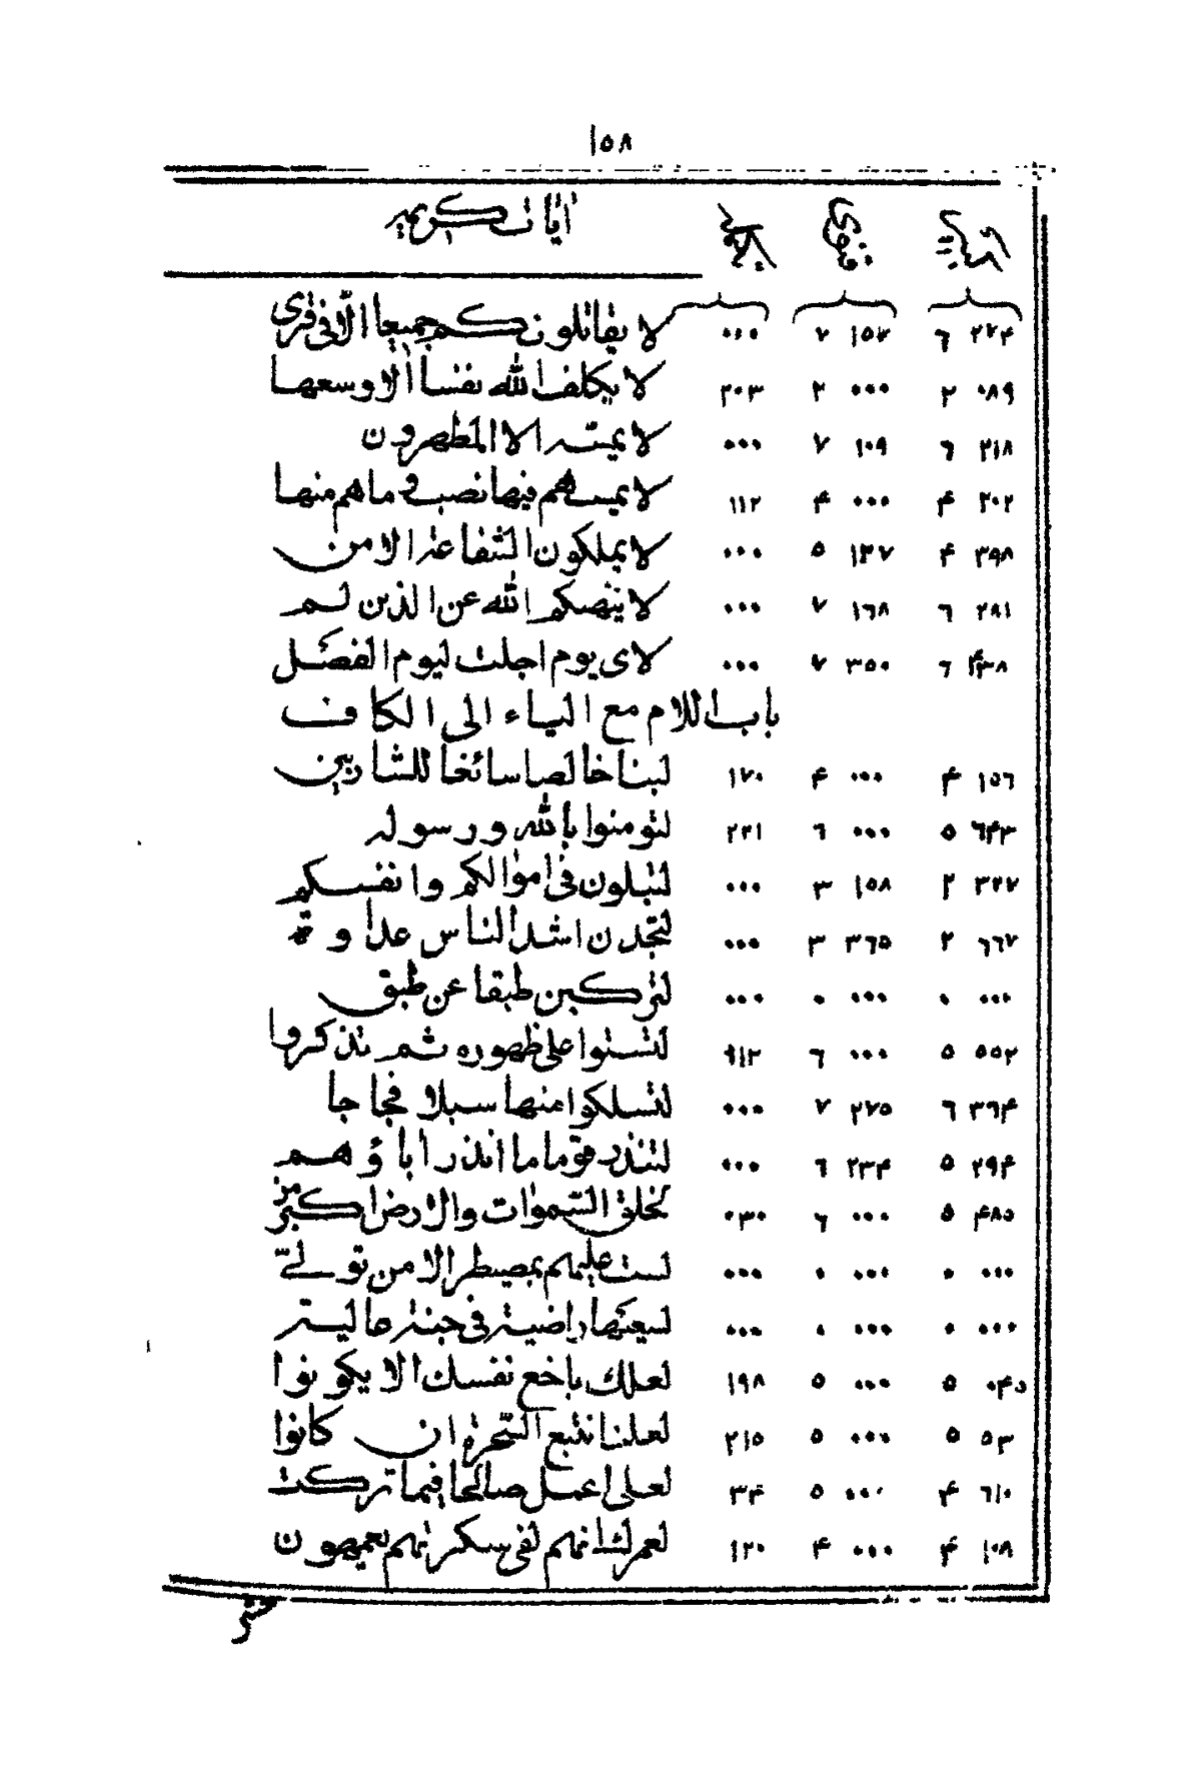 ١٥٨
آيات كريمه
٢٧٤ ٦ ١٥٧ ٧ ٠٠٠ لا يقاتلونكم جميعا الا فى قرى
٠٨٩ ٢ ٠٠٠ ٢ ٢٠٣ لا يكلف الله نفسا الا وسعها
٢١٨ ٦ ١٠٩ ٧ ٠٠٠ لا يمسه الا المطهرون
٢٠٢ ٤ ٠٠٠ ٤ ١١٢ لا يمسهم فيها نصب وما هم منها
٣٩٨ ٤ ١٢٧ ٥ ٠٠٠ لا يملكون الشفاعة الا من
٢٨١ ٦ ١٦٨ ٧ ٠٠٠ لا ينهىكم الله عن الذين لم
٤٣٨ ٦ ٣٥٠ ٧ ٠٠٠ لاى يوم اجلت ليوم الفصل
باب اللام مع الياء الى الكاف
١٥٦ ٤ ٠٠٠ ٤ ١٧٠ لبنا خالصا سائغا للشاربين
٦٤٣ ٥ ٠٠٠ ٦ ٢٢١ لتومنوا بالله ورسوله
٣٢٧ ٢ ١٥٨ ٣ ٠٠٠ لتبلون فى اموالكم وانفسكم
٦٦٧ ٢ ٣٦٥ ٣ ٠٠٠ لتجدن اشد الناس عداوة
٠٠٠ ٠ ٠٠٠ ٠ ٠٠٠ لتركبن طبقا عن طبق
٥٥٢ ٥ ٠٠٠ ٦ ٩١٢ لتستوا على ظهوره ثم تذكروا
٣٦٤ ٦ ٢٧٥ ٧ ٠٠٠ لتسلكوا منها سبلا فجاجا
٢٩٤ ٥ ٢٣٤ ٦ ٠٠٠ لتنذر قوما ما انذر اباؤهم
٤٨٥ ٥ ٠٠٠ ٦ ٠٣٠ لخلق السموات والارض اكبر من
٠٠٠ ٠ ٠٠٠ ٠ ٠٠٠ لست عليهم بمصيطر الا من تولى
٠٠٠ ٠ ٠٠٠ ٠ ٠٠٠ لسعيها راضية فى جنة عالية
٠٤٥ ٥ ٠٠٠ ٥ ١٩٨ لعلك باخع نفسك الا يكونوا
٥٣ ٥ ٠٠٠ ٥ ٢١٥ لعلنا نتبع السحرة ان كانوا
٦١٠ ٤ ٠٠٠ ٥ ٣٤ لعلى اعمل صالحا فيما تركت
١٠٨ ٤ ٠٠٠ ٤ ١٢٠ لعمرك انهم لفى سكرتهم يعمهون